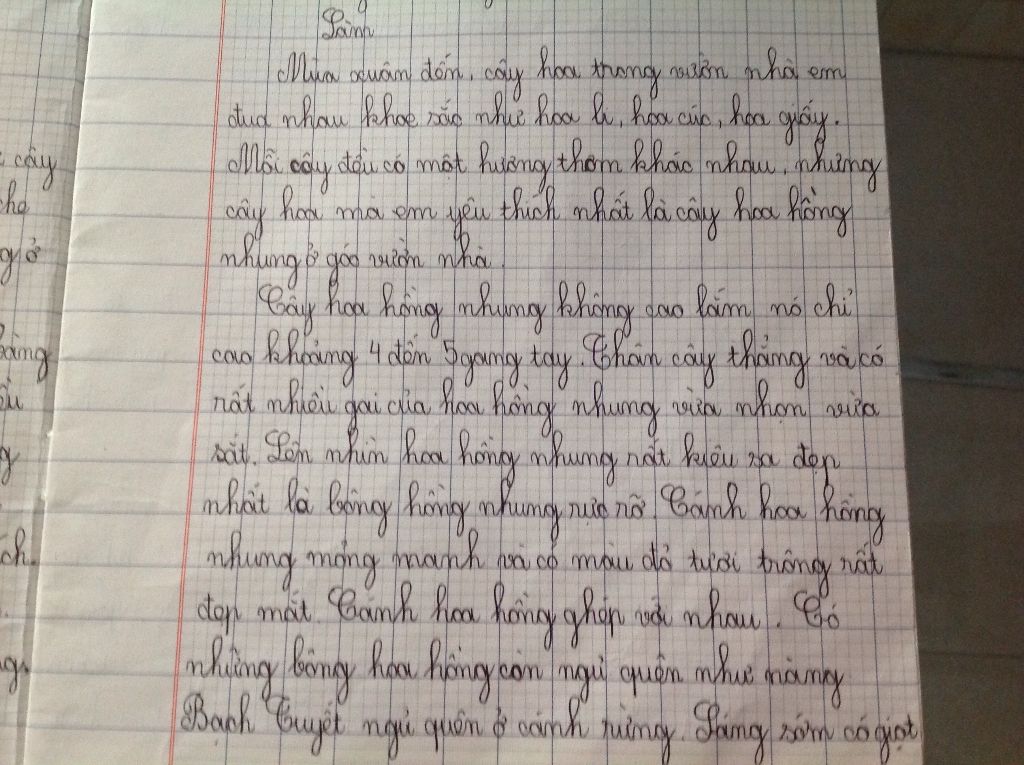 Lành
Mùa xuân đến, cây hoa trong vườn nhà em
đua nhau khoe sắc như hoa li, hoa cúc, hoa giấy.
Mỗi cây đều có một hương thơm khác nhau, nhưng
cây hoa mà em yêu thích nhất là cây hoa hồng
nhung ở góc vườn nhà.
Cây hoa hồng nhung không cao lắm nó chỉ
cao khoảng 4 đến 5 gang tay. Thân cây thẳng và có
rất nhiều gai của hoa hồng nhung vừa nhọn vừa
sắt. Lên nhìn hoa hồng nhung rất kiêu sa đẹp
nhất là bông hồng nhung rực rỡ Cánh hoa hồng
nhung mỏng manh và có màu đỏ tươi trông rất
đẹp mắt. Cánh hoa hồng ghép với nhau. Có
những bông hoa hồng còn ngủ quên như nàng
Bạch Tuyết ngủ quên ở cánh rừng. Sáng sớm có giọt
cây
ở
ch.